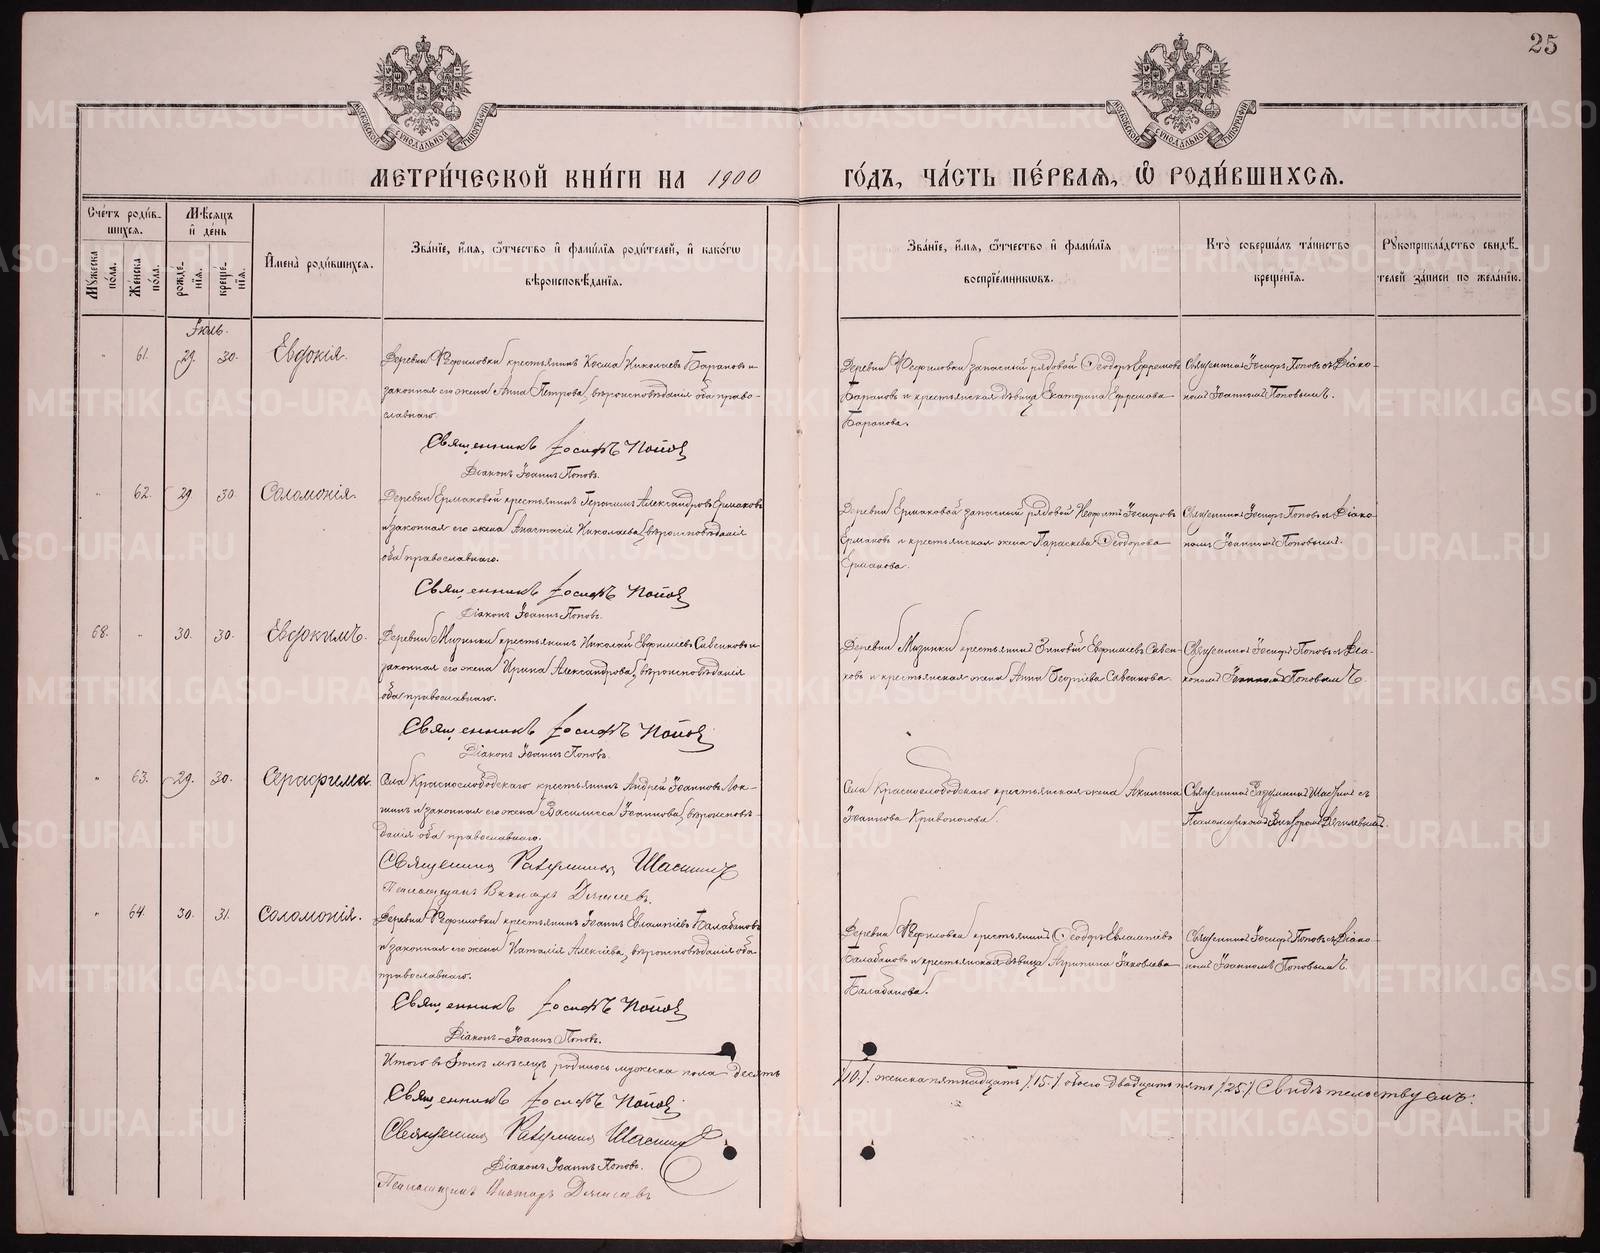 25
МЕТРИ́ЧЕСКОЙ КНИ́ГИ НА 1900 ГО́ДЪ, ЧА́СТЬ ПЕ́РВАЯ, Ѽ РОДИ́ВШИХСЯ.
Сче́тъ роди́в-
шихся.
Му́жеска по́ла.
Же́нска по́ла.
Мѣ́сяцъ и де́нь
рожде́-нія.
креще́-нія.
Имена̀ роди́вшихся.
Зва́ніе, и́мя, ѻ́тчество и фами́лія роди́телей, и како́гѡ
вѣроисповѣ́данія.
Зва́ніе, и́мя, ѻ́тчество и фами́лія
воспріе́мникѡвъ.
Кто̀ соверша́лъ та́инство
креще́нія.
Рꙋкоприкла́дство свидѣ́-
телей за́писи по жела́нію.
Іюль.
61. 29. 30. Евдокія.
крестьянинъ Косма Николаевъ Барановъ и
законная его жена Анна Петрова, вѣроисповѣданія оба право-
славнаго.
Священникъ Іосифъ Поповъ
Діаконъ Іоаннъ Поповъ.
запасный рядовой Ѳеодоръ Ефремовъ
Барановъ и крестьянская дѣвица Екатерина Ефремова
Баранова.
Священникъ Іосифъ Поповъ съ Діако-
номъ Іоанномъ Поповымъ.
62. 29. 30. Соломонія.
Деревни Ермаковой крестьянинъ Герасимъ Александровъ Ермаковъ
и законная его жена Анастасія Николаева, вѣроисповѣданія
оба православнаго.
Священникъ Іосифъ Поповъ
Діаконъ Іоаннъ Поповъ.
Деревни Ермаковой запасный рядовой Неофитъ Іосифовъ
Ермаковъ и крестьянская жена Параскева Ѳеодорова
Ермакова.
Священникъ Іосифъ Поповъ съ Діако-
номъ Іоанномъ Поповымъ.
68. 30. 30. Евдокимъ.
Деревни Мизинки крестьянинъ Николай Савенковъ и
законная его жена Ирина Александрова, вѣроисповѣданія
оба православнаго.
Священникъ Іосифъ Поповъ
Діаконъ Іоаннъ Поповъ.
Деревни Мизинки крестьянинъ Зиновій Савен-
ковъ и крестьянская жена Анна Георгіева Савенкова.
Священникъ Іосифъ Поповъ съ Діа-
кономъ Іоанномъ Поповымъ
63. 29. 30. Серафима.
Села Краснослободскаго крестьянинъ Андрей Іоанновъ Лок-
шинъ и законная его жена Василисса Іоаннова, вѣроисповѣ-
данія оба православнаго.
Священникъ
Псаломщикъ Викторъ
Села Краснослободскаго крестьянская жена Акилина
Іоаннова Кривоногова.
Священникъ съ
Псаломщикомъ Викторомъ
64. 30. 31. Соломонія.
крестьянинъ Іоаннъ Евлампіевъ Балабановъ
и законная его жена Наталія Алексіева, вѣроисповѣданія оба
православнаго.
Священникъ Іосифъ Поповъ
Діаконъ Іоаннъ Поповъ.
крестьянинъ Ѳеодоръ Евлампіевъ
Балабановъ и крестьянская дѣвица Агрипина Іаковлева
Балабанова.
Священникъ Іосифъ Поповъ съ Діако-
номъ Іоанномъ Поповымъ
Итого въ Іюлѣ мѣсяцѣ родилось мужеска пола десять
/10./. женска пятнадцать /15./ обоего двадцать пять /25./ Свидѣтельствуемъ:
Священникъ Іосифъ Поповъ
Священникъ
Діаконъ Іоаннъ Поповъ.
Псаломщикъ Викторъ